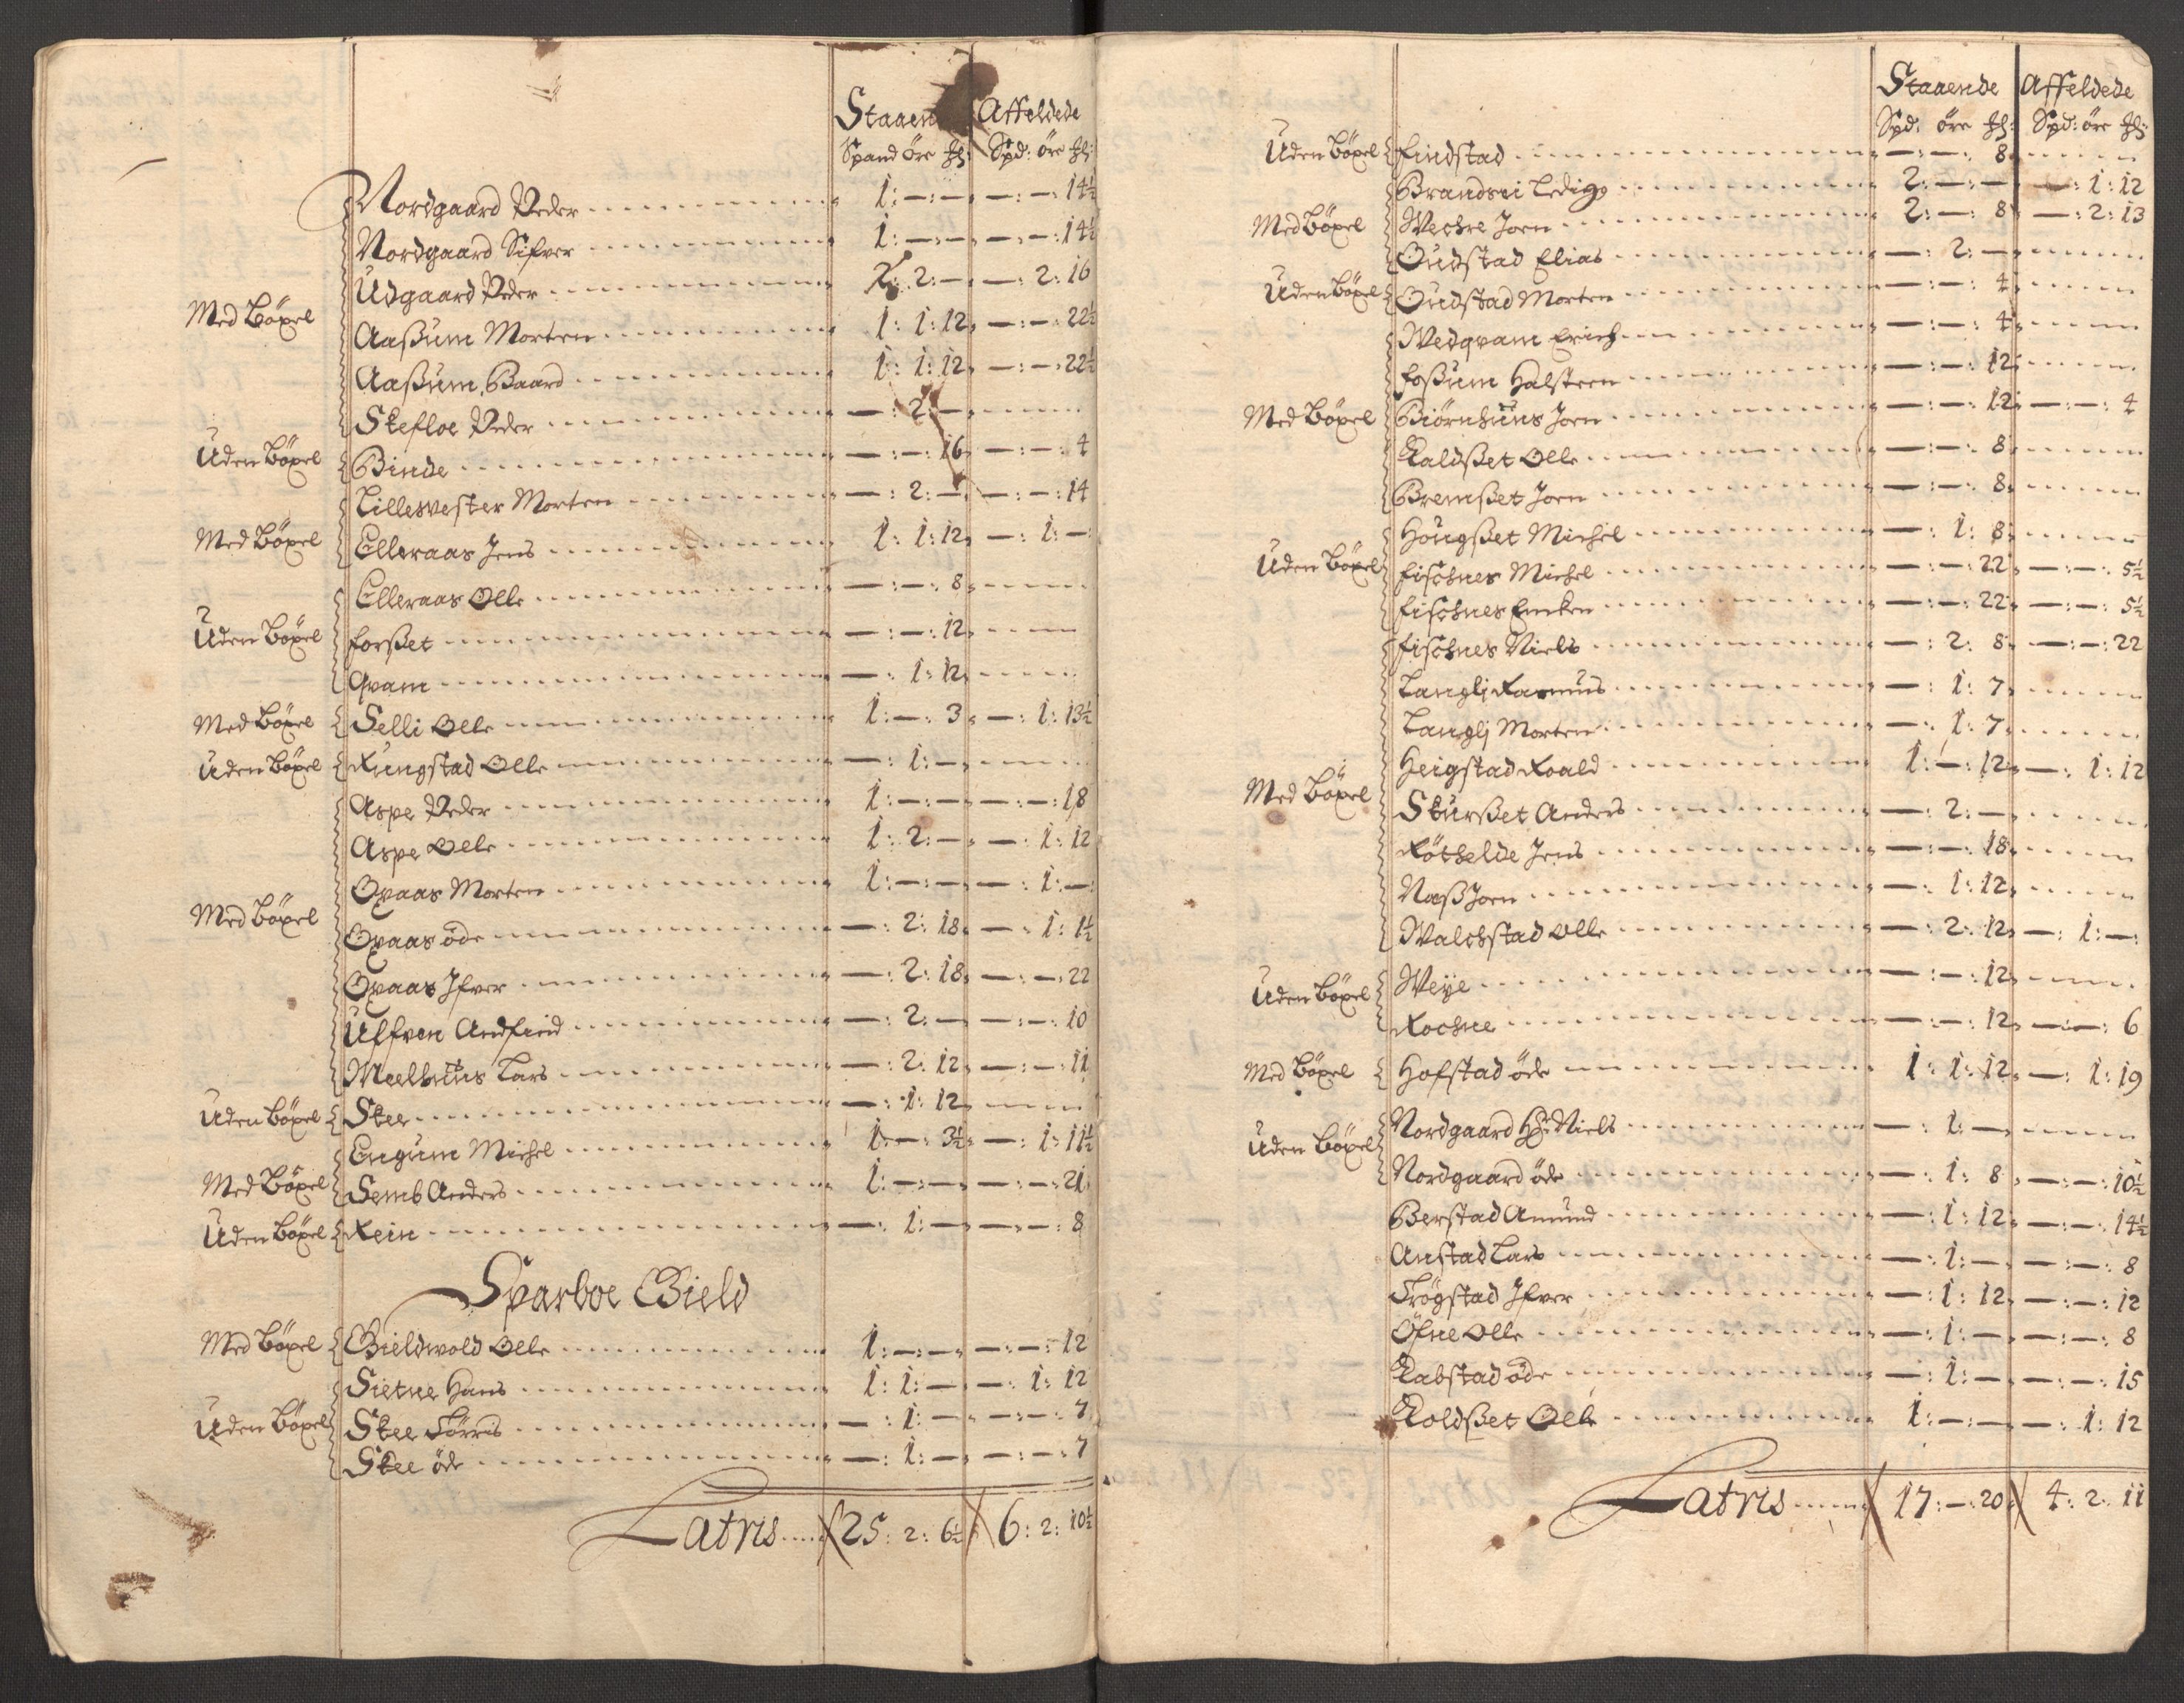 Staaen Affeldede
Spand öre Spd: öre
Nordgaard Peder 1: — : — — : — : 14½
Nordgaard Sifver 1: — : — — : — : 14½
Udgaard Peder 2: 2: — — : 2: 16
Med Böxel Aaßum Morten 1: 1: 12 — : — : 22½
Aaßum Baard 1: 1: 12 — : — : 22½
Skefloe Peder — : 2: —
Uden Böxel Binde — : — : 16 — : — : 4
Lillesvester Morten — : 2: — — : — : 14
Med Böxel Elleraas Jens 1: 1: 12 — : 1: —
Elleraas Olle — : — : 8
Uden Böxel Forßet — : — : 12
Qvam — : 1: 12
Med Böxel Selli Olle 1: — : 3 — : 1: 13½
Uden Böxel Rungstad Olle — : 1: —
Aspe Peder 1: — : — — : — : 18
Aspe Olle 1: 2: — — : 1: 12
Oxaas Morten 1: — : — — : 1: —
Med Böxel Oxaas öde — : 2: 18 — : 1: 1½
Oxaas Ifver — : 2: 18 — : — : 22
Ulfven Andfind — : 2: — — : — : 10
Meelhuus Lars — : 2: 12 — : — : 11
Uden Böxel Skee — : 1: 12
Engum Michel 1: — : 3½ — : 1: 11½
Med Böxel Semb Anders 1: — : — — : — : 21
Uden Böxel Rein — : 1: — — : — : 8
Sparboe Gield
Med Böxel Gieldwold Olle 1: — : — — : — : 12
Sietne Hans 1: 1: — — : 1: 12
Uden Böxel Skee Törris — : 1: — — : — : 7
Skee öde — : 1: — — : — : 7
Latris 25: 2: 6½ 6: 2: 10½
Staaende Affeldede
Spd: öre Spd: öre
Uden Böxel Findstad — : — : 8
Brandsei Ledig 2: — : — — : 1: 12
Med Böxel Wechre Joen 2: — : 8 — : 2: 13
Oudstad Elias — : 2: —
Uden Böxel Oudstad Morten — : — : 4
Wedqvam Erich — : — : 4
Foßum Halsteen — : — : 12
Med Böxel Biörnhuus Joen — : — : 12 — : — : 4
Kaldßet Olle — : — : 8
Bremßet Joen — : — : 8
Hougßet Michel — : 1: 8
Uden Böxel Fischnes Michel — : — : 22 — : — : 5½
Fischnes Encken — : — : 22 — : — : 5½
Fischnes Niels — : 2: 8 — : — : 22
Langlj Rasmus — : 1: 7
Langlj Morten — : 1: 7
Heigstad Roald 1: — : 12 — : 1: 12
Med Böxel Skurßet Anders — : 2: —
Röthelde Jens — : — : 18
Næß Joen — : 1: 12
Walchstad Olle — : 2: 12 — : 1: —
Uden Böxel Weye — : — : 12
Rochne — : — : 12 — : — : 6
Med Böxel Hofstad öde 1: 1: 12 — : 1: 19
Uden Böxel Nordgaard Hr Niels — : 1: —
Nordgaard öde — : 1: 8 — : — : 10½
Berstad Amund — : 1: 12 — : — : 14½
Anstad Lars — : 1: — — : — : 8
Trögstad Ifver — : 1: 12 — : — : 12
Öfne Olle — : 1: — — : — : 8
Kabstad öde — : 1: — — : — : 15
Koldßet Olle 1: — : — — : 1: 12
Latris 17: — : 20 4: 2: 11